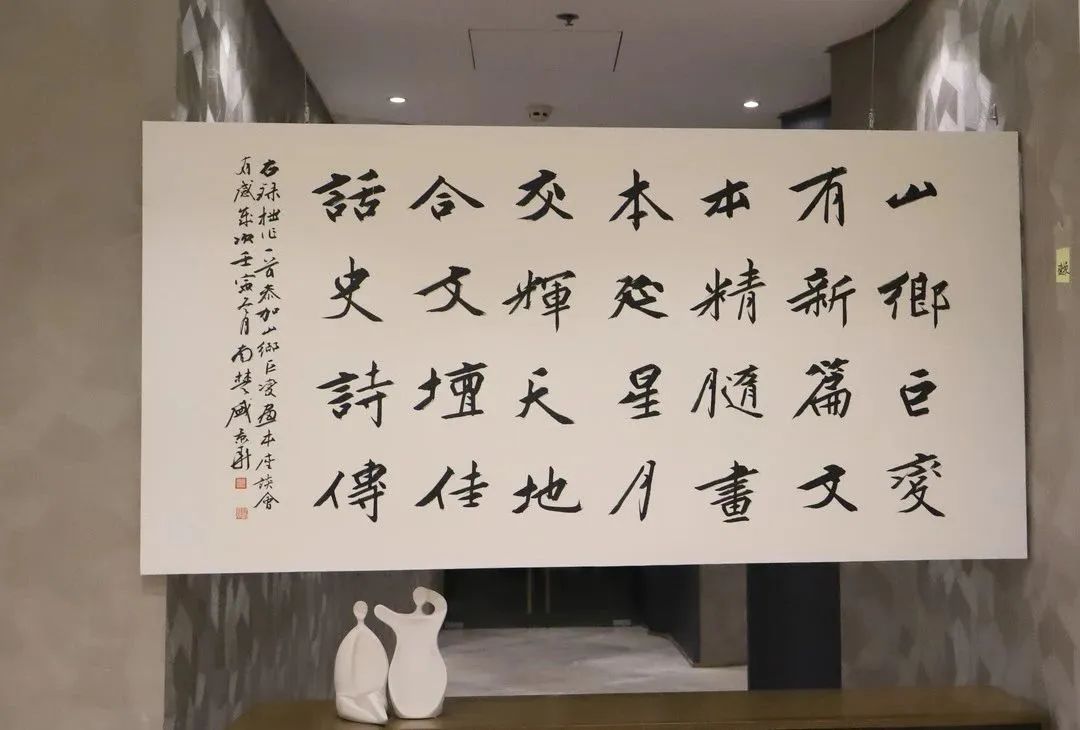 山鄉巨變
有新篇文
本精髓畫
本延星月
交輝天地
合文壇佳
話史詩傳
右錄拙作一首參加山鄉巨變畫本座談會
有感歲次壬寅
月南楚盛景華